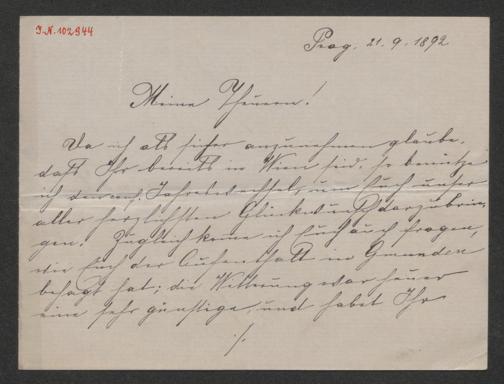 I.N. 102944
Prag. 21. 9. 1892
Meine Theuern!
Da ich als sicher anzunehmen glaube,
daß Ihr bereits in Wien seid, so benütze
ich den Jahreswechsel, um Euch unser
aller herzlichsten Glückwunsch darzubrin-
gen. Zugleich ich Euch auch fragen,
wie Euch der Aufenthalt in Gmunden
behagt hat; die Witterung war heuer
eine sehr günstige, und habet Ihr
./.